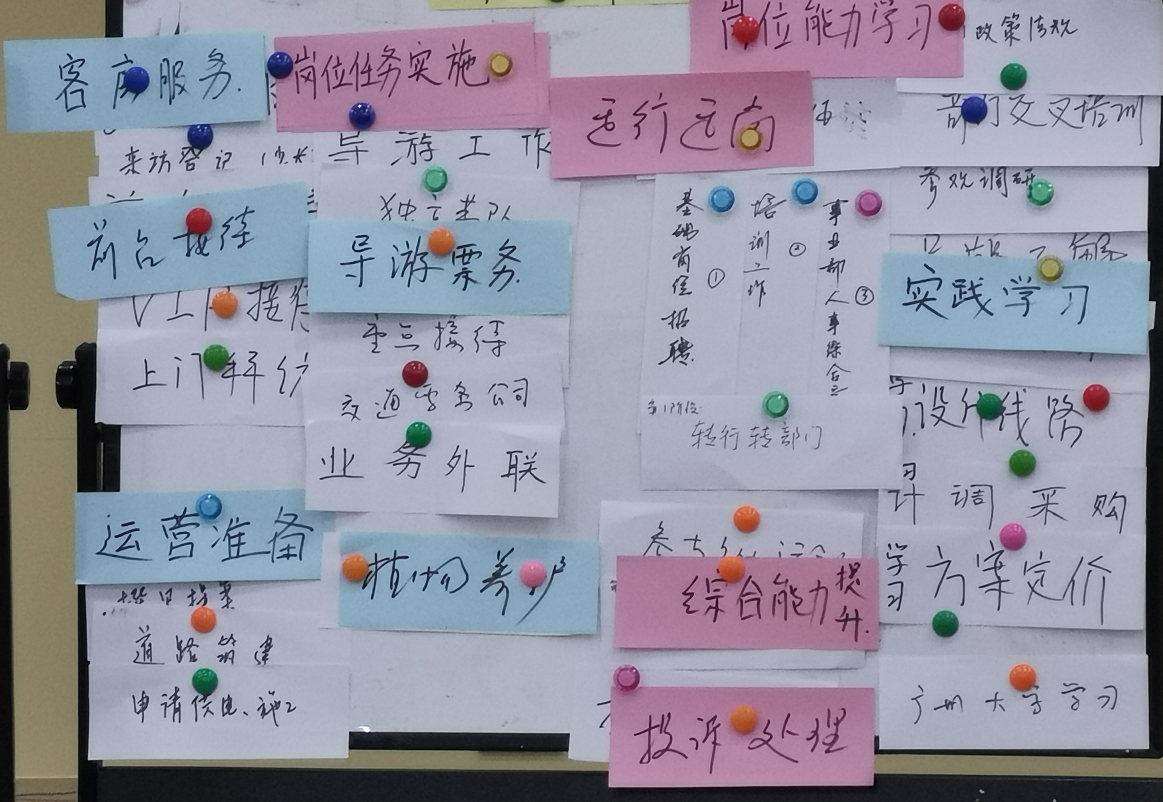 岗位能力学习
政策法规
客户服务.
岗位任务实施
运行运商
部门交叉培训
来访登记
导游工作
参观调研
前台接待
独立带队
导游票务
基础岗位招聘①
培训工作②
事业部人事综合③
实践学习
重点接待
上门拜访
交通票务公司
学习设计线路
第1阶段:
转行转部门
业务外联
学习计调采购
运营准备
植物养护
学习方案定价
综合能力提升.
道路筑建
申请供电、施工
广州大学学习
投诉处理